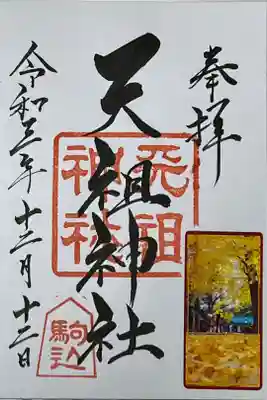 奉拝
天祖神社
天祖神社
駒込
令和三年十二月十二日